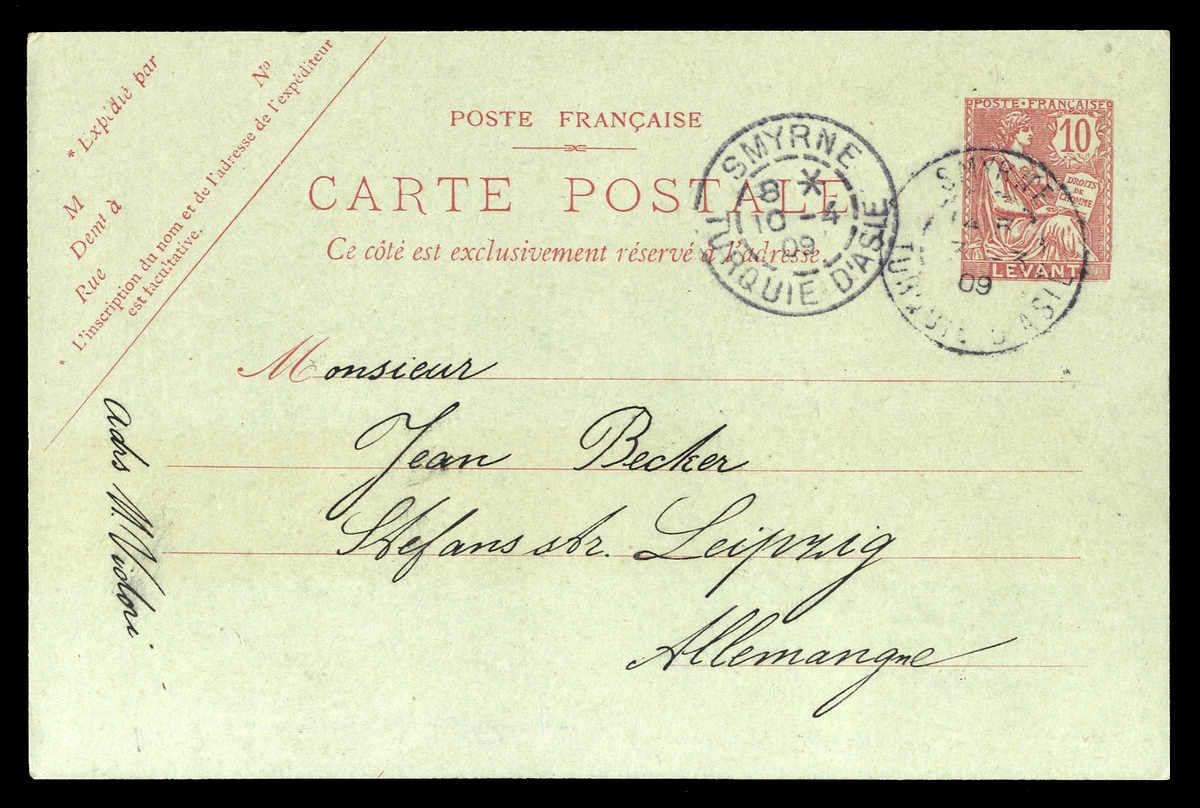 * Expédié par
M
Nº
Demt à
Rue
* L'inscription du nom et de l'adresse de l'expéditeur
est facultative.
POSTE FRANÇAISE
CARTE POSTALE
Ce côté est exclusivement réservé à l'adresse.
SMYRNE
8 *
10 -4
09
TURQUIE D'ASIE
POSTE·FRANÇAISE
10
DROITS
DE
L'HOMME
LEVANT
SMYRNE
09
TURQUIE D'ASIE
Monsieur
Jean Becker
Stefans str. Leipzig
Allemangne
adrs